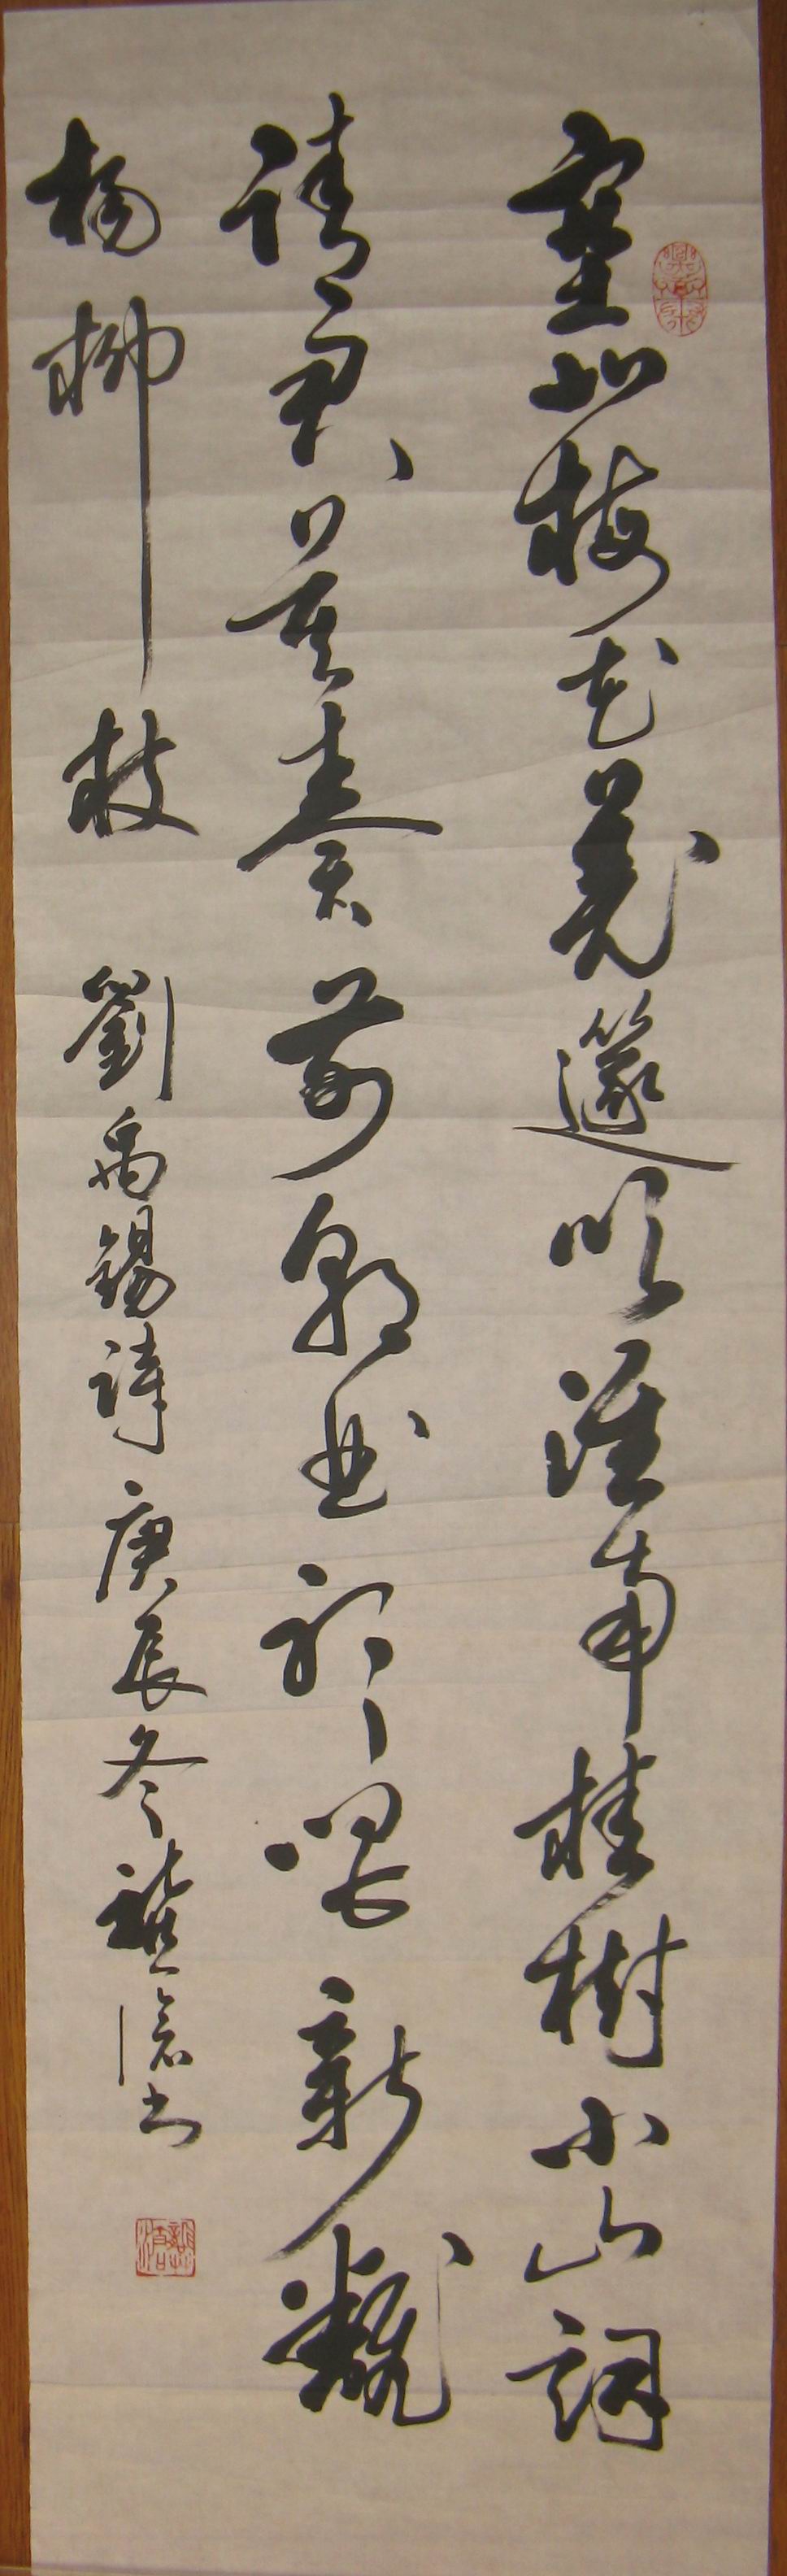 塞北梅花羌篴吹淮南桂樹小山詞
請君莫奏前朝曲聽唱新翻
楊柳枝 劉禹錫詩 庚辰冬 滄书